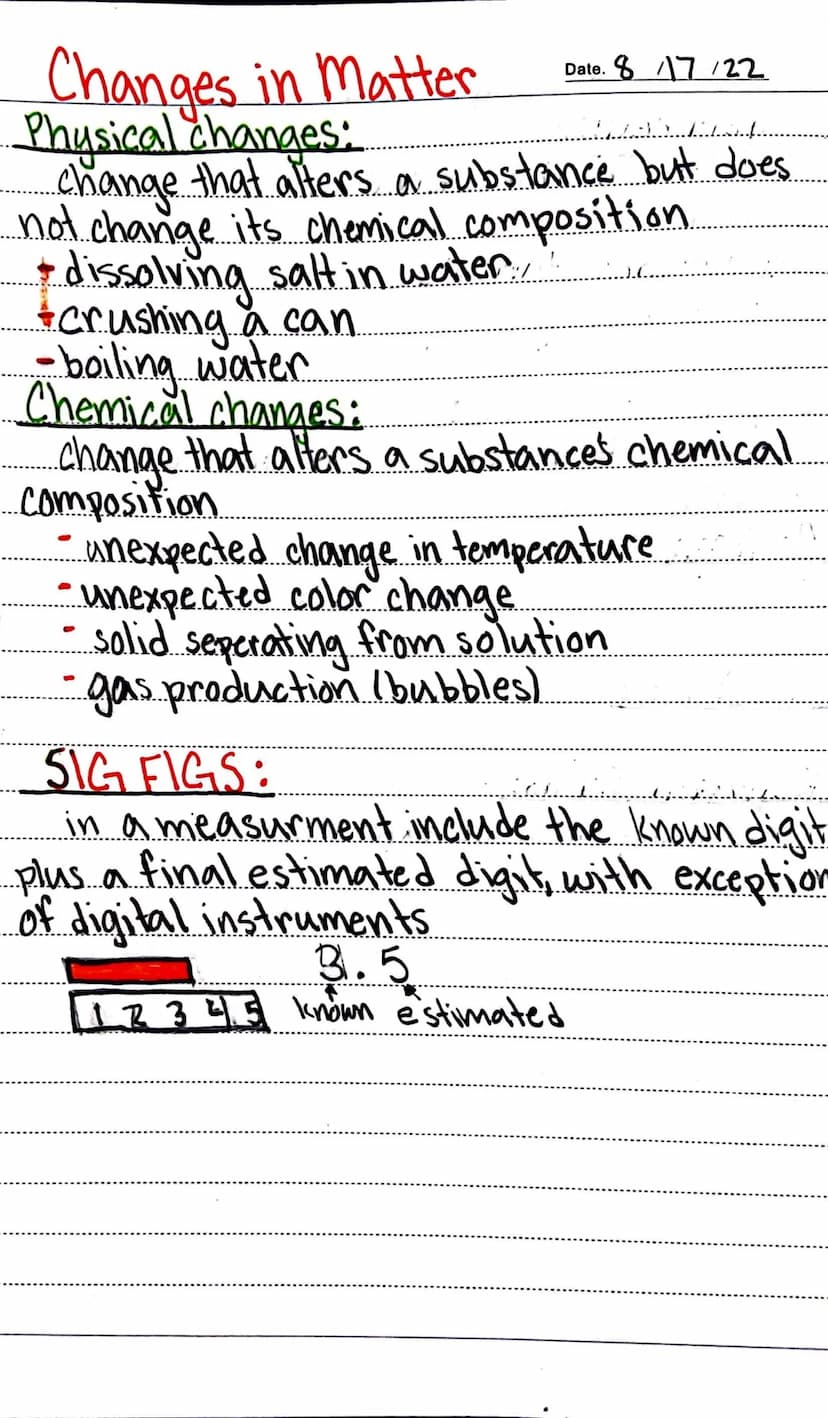 Changes in Matter
Date. 8 /17 /22
Physical changes:
change that alters a substance but does
not change its chemical composition
- dissolving salt in water
- crushing a can
- boiling water
Chemical changes:
change that alters a substance's chemical
composition
- unexpected change in temperature
- unexpected color change
- solid seperating from solution
- gas production (bubbles)
SIG FIGS:
in a measurment include the known digit
plus a final estimated digit, with exception
of digital instruments
3.5
1 2 3 4 5 known estimated